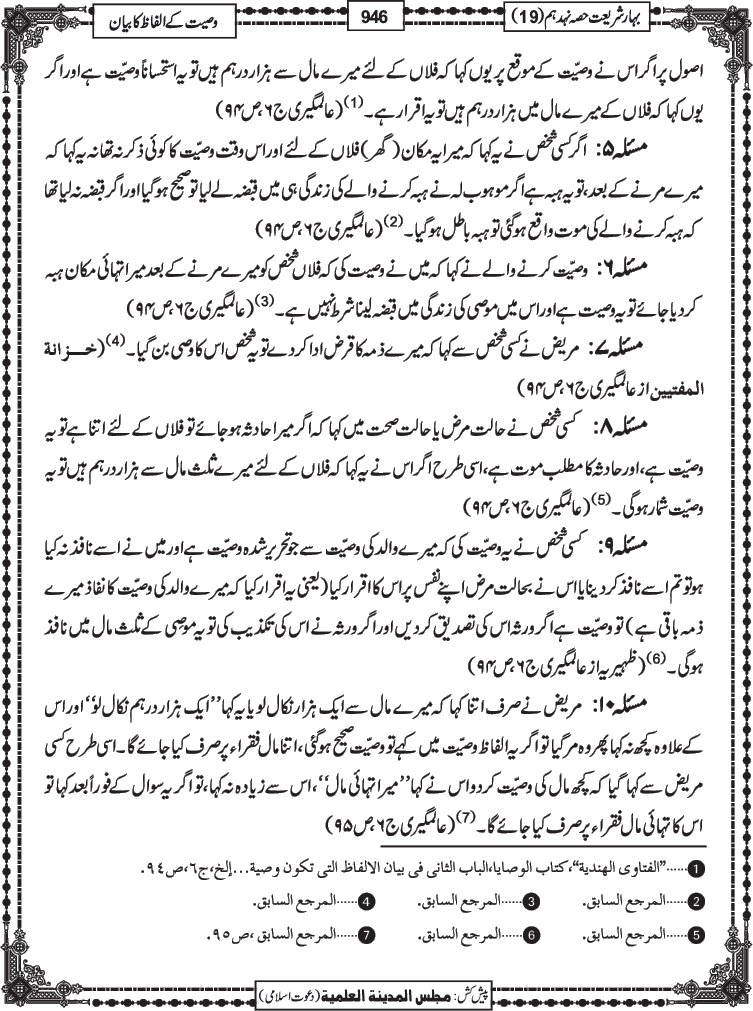 بہارِ شریعت حصہ نہدہم (19)
946
وصیت کے الفاظ کا بیان
اصول پر اگر اس نے وصیت کے موقع پر یوں کہا کہ فلاں کے لئے میرے مال سے ہزار درہم ہیں تو یہ استحساناً وصیّت ہے اور اگر
یوں کہا کہ فلاں کے میرے مال میں ہزار درہم ہیں تو یہ اقرار ہے۔(1) (عالمگیری ج۶،ص۹۴)
مسئلہ ۵: اگر کسی شخص نے یہ کہا کہ میرا یہ مکان (گھر) فلاں کے لئے اور اس وقت وصیّت کا کوئی ذکر نہ تھا نہ یہ کہا کہ
میرے مرنے کے بعد، تو یہ ہبہ ہے اگر موہوب لہ نے ہبہ کرنے والے کی زندگی ہی میں قبضہ لے لیا تو صحیح ہوگیا اور اگر قبضہ نہ لیا تھا
کہ ہبہ کرنے والے کی موت واقع ہوگئی تو ہبہ باطل ہوگیا۔(2) (عالمگیری ج۶،ص۹۴)
مسئلہ ۶: وصیّت کرنے والے نے کہا کہ میں نے وصیت کی کہ فلاں شخص کو میرے مرنے کے بعد میرا تہائی مکان ہبہ
کردیا جائے تو یہ وصیت ہے اور اس میں موصی کی زندگی میں قبضہ لینا شرط نہیں ہے۔(3) (عالمگیری ج۶،ص۹۴)
مسئلہ ۷: مریض نے کسی شخص سے کہا کہ میرے ذمہ کا قرض ادا کردے تو یہ شخص اس کا وصی بن گیا۔(4) (خزانة
المفتیین از عالمگیری ج۶،ص۹۴)
مسئلہ ۸: کسی شخص نے حالت مرض یا حالت صحت میں کہا کہ اگر میرا حادثہ ہوجائے تو فلاں کے لئے اتنا ہے تو یہ
وصیّت ہے، اور حادثہ کا مطلب موت ہے، اسی طرح اگر اس نے یہ کہا کہ فلاں کے لئے میرے ثلث مال سے ہزار درہم ہیں تو یہ
وصیّت شمار ہوگی۔(5) (عالمگیری ج۶،ص۹۴)
مسئلہ ۹: کسی شخص نے یہ وصیّت کی کہ میرے والد کی وصیّت سے جو تحریر شدہ وصیّت ہے اور میں نے اسے نافذ نہ کیا
ہو تو تم اسے نافذ کردینا یا اس نے بحالت مرض اپنے نفس پر اس کا اقرار کیا (یعنی یہ اقرار کیا کہ میرے والد کی وصیّت کا نفاذ میرے
ذمہ باقی ہے) تو وصیّت ہے اگر ورثہ اس کی تصدیق کردیں اور اگر ورثہ نے اس کی تکذیب کی تو یہ موصِی کے ثلث مال میں نافذ
ہوگی۔(6) (ظہیریہ از عالمگیری ج۶،ص۹۴)
مسئلہ ۱۰: مریض نے صرف اتنا کہا کہ میرے مال سے ایک ہزار نکال لو یا یہ کہا ’’ایک ہزار درہم نکال لو‘‘ اور اس
کے علاوہ کچھ نہ کہا پھر وہ مرگیا تو اگر یہ الفاظ وصیّت میں کہے تو وصیّت صحیح ہوگئی، اتنا مال فقراء پر صرف کیا جائے گا۔ اسی طرح کسی
مریض سے کہا گیا کہ کچھ مال کی وصیّت کردو اس نے کہا ’’میرا تہائی مال‘‘، اس سے زیادہ نہ کہا، تو اگر یہ سوال کے فوراً بعد کہا تو
اس کا تہائی مال فقراء پر صرف کیا جائے گا۔(7) (عالمگیری ج۶،ص۹۵)
1......"الفتاوى الهندية"،كتاب الوصايا،الباب الثانى فى بيان الالفاظ التى تكون وصية...إلخ،ج٦،ص٩٤.
2......المرجع السابق. 3......المرجع السابق. 4......المرجع السابق.
5......المرجع السابق. 6......المرجع السابق. 7......المرجع السابق ،ص٩٥.
پیش کش: مجلس المدینة العلمیة (دعوتِ اسلامی)